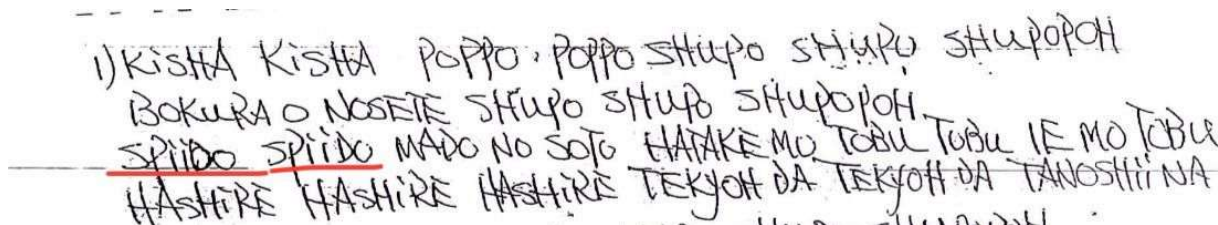 1) KISHA KISHA POPPO, POPPO SHUPO SHUPO SHUPOPOH
BOKURA O NOSETE SHUPO SHUPO SHUPOPOH
SPIIDO SPIIDO MADO NO SOTO HATAKE MO TOBU TOBU IE MO TOBU
HASHIRE HASHIRE HASHIRE TEKYOH DA TEKYOH DA TANOSHII NA